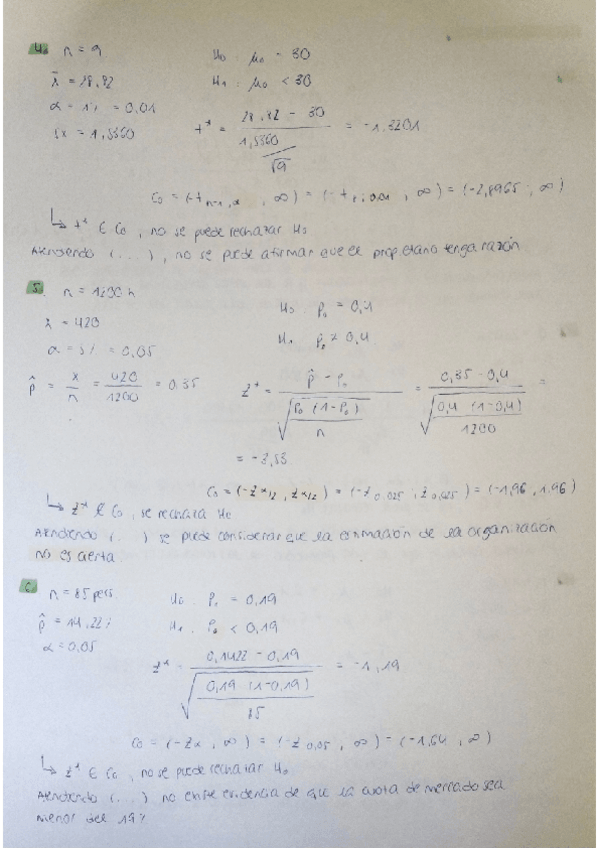 4. n = 9
H₀: μ₀ = 30
x̄ = 28,82
H₁: μ₀ < 30
α = 1% = 0,01
sx = 1,5360
t* = (28,82 - 30) / (1,5360 / √9) = -1,3201
C₀ = (-t n-1, α , ∞) = (-t 8; 0,01 , ∞) = (-2,8965 , ∞)
↳ t* ∈ C₀, no se puede rechazar H₀
Atendiendo (...), no se puede afirmar que el propietario tenga razón
5. n = 1200 h
H₀: p₀ = 0,4
x = 420
H₁: p₀ ≠ 0,4
α = 5% = 0,05
p̂ = x / n = 420 / 1200 = 0,35
z* = (p̂ - p₀) / √(p₀ (1-p₀) / n) = (0,35 - 0,4) / √(0,4 (1-0,4) / 1200) =
= -3,53
C₀ = (-z α/2 , z α/2) = (-z 0,025 , z 0,025) = (-1,96 , 1,96)
↳ z* ∉ C₀, se rechaza H₀
Atendiendo (...) se puede considerar que la estimación de la organización
no es cierta
6. n = 85 pers
H₀: p₀ = 0,19
p̂ = 14,22%
H₁: p₀ < 0,19
α = 0,05
z* = (0,1422 - 0,19) / √(0,19 (1-0,19) / 85) = -1,19
C₀ = (-z α , ∞) = (-z 0,05 , ∞) = (-1,64 , ∞)
↳ z* ∈ C₀, no se puede rechazar H₀
Atendiendo (...) no existe evidencia de que la cuota de mercado sea
menor del 19%